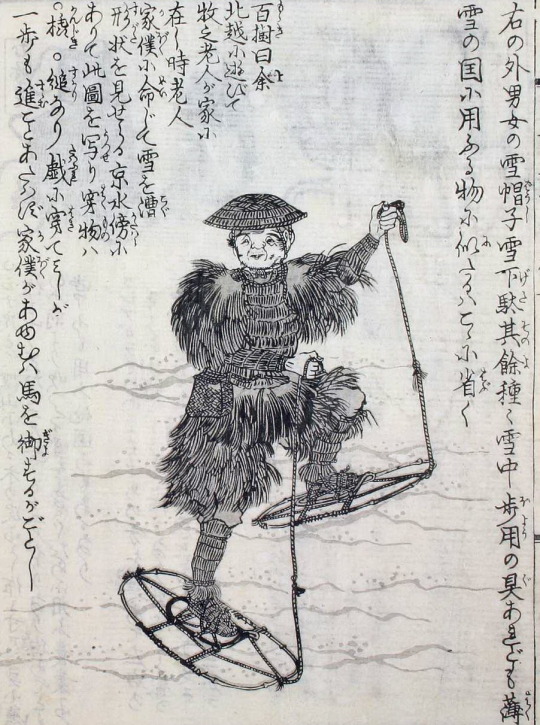 右の外男女の雪帽子雪下駄其餘種〻雪中歩用の具あれども薄
雪の国に用ふる物に似たればこゝに省く
百樹曰余
北越に遊びて
牧之老人が家に
在し時老人
家僕に命じて雪を漕
形状を見せらる京水傍に
ありて此圖を写り穿物は
。橇。縋なり戯に穿てみしが
一歩も進ことあたはず家僕があゆむは馬を御するがごとし